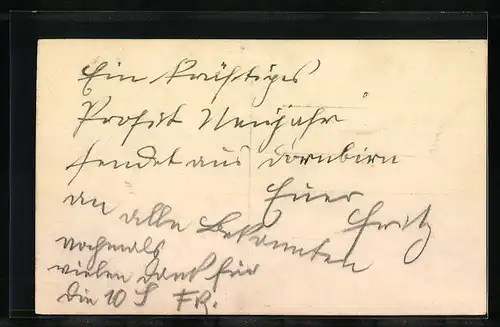 Ein kräftiges
Prosit Neujahr
sendet aus Dornbirn
Euer
Fritz
an alle Bekannten
nochmals
vielen Dank für
die 10 S FR.